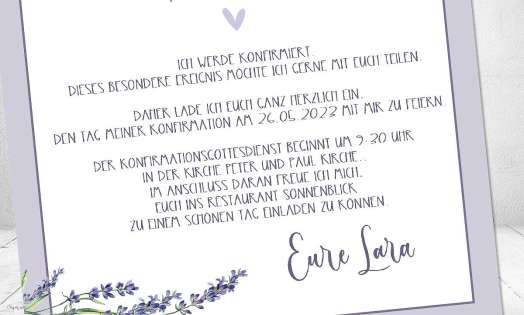 ICH WERDE KONFIRMIERT.
DIESES BESONDERE EREIGNIS MÖCHTE ICH GERNE MIT EUCH TEILEN.
DAHER LADE ICH EUCH GANZ HERZLICH EIN,
DEN TAG MEINER KONFIRMATION AM 26.06.2023 MIT MIR ZU FEIERN.
DER KONFIRMATIONSGOTTESDIENST BEGINNT UM 9.30 UHR
IN DER KIRCHE PETER UND PAUL KIRCHE..
IM ANSCHLUSS DARAN FREUE ICH MICH,
EUCH INS RESTAURANT SONNENBLICK
ZU EINEM SCHÖNEN TAG EINLADEN ZU KÖNNEN.
Eure Lara